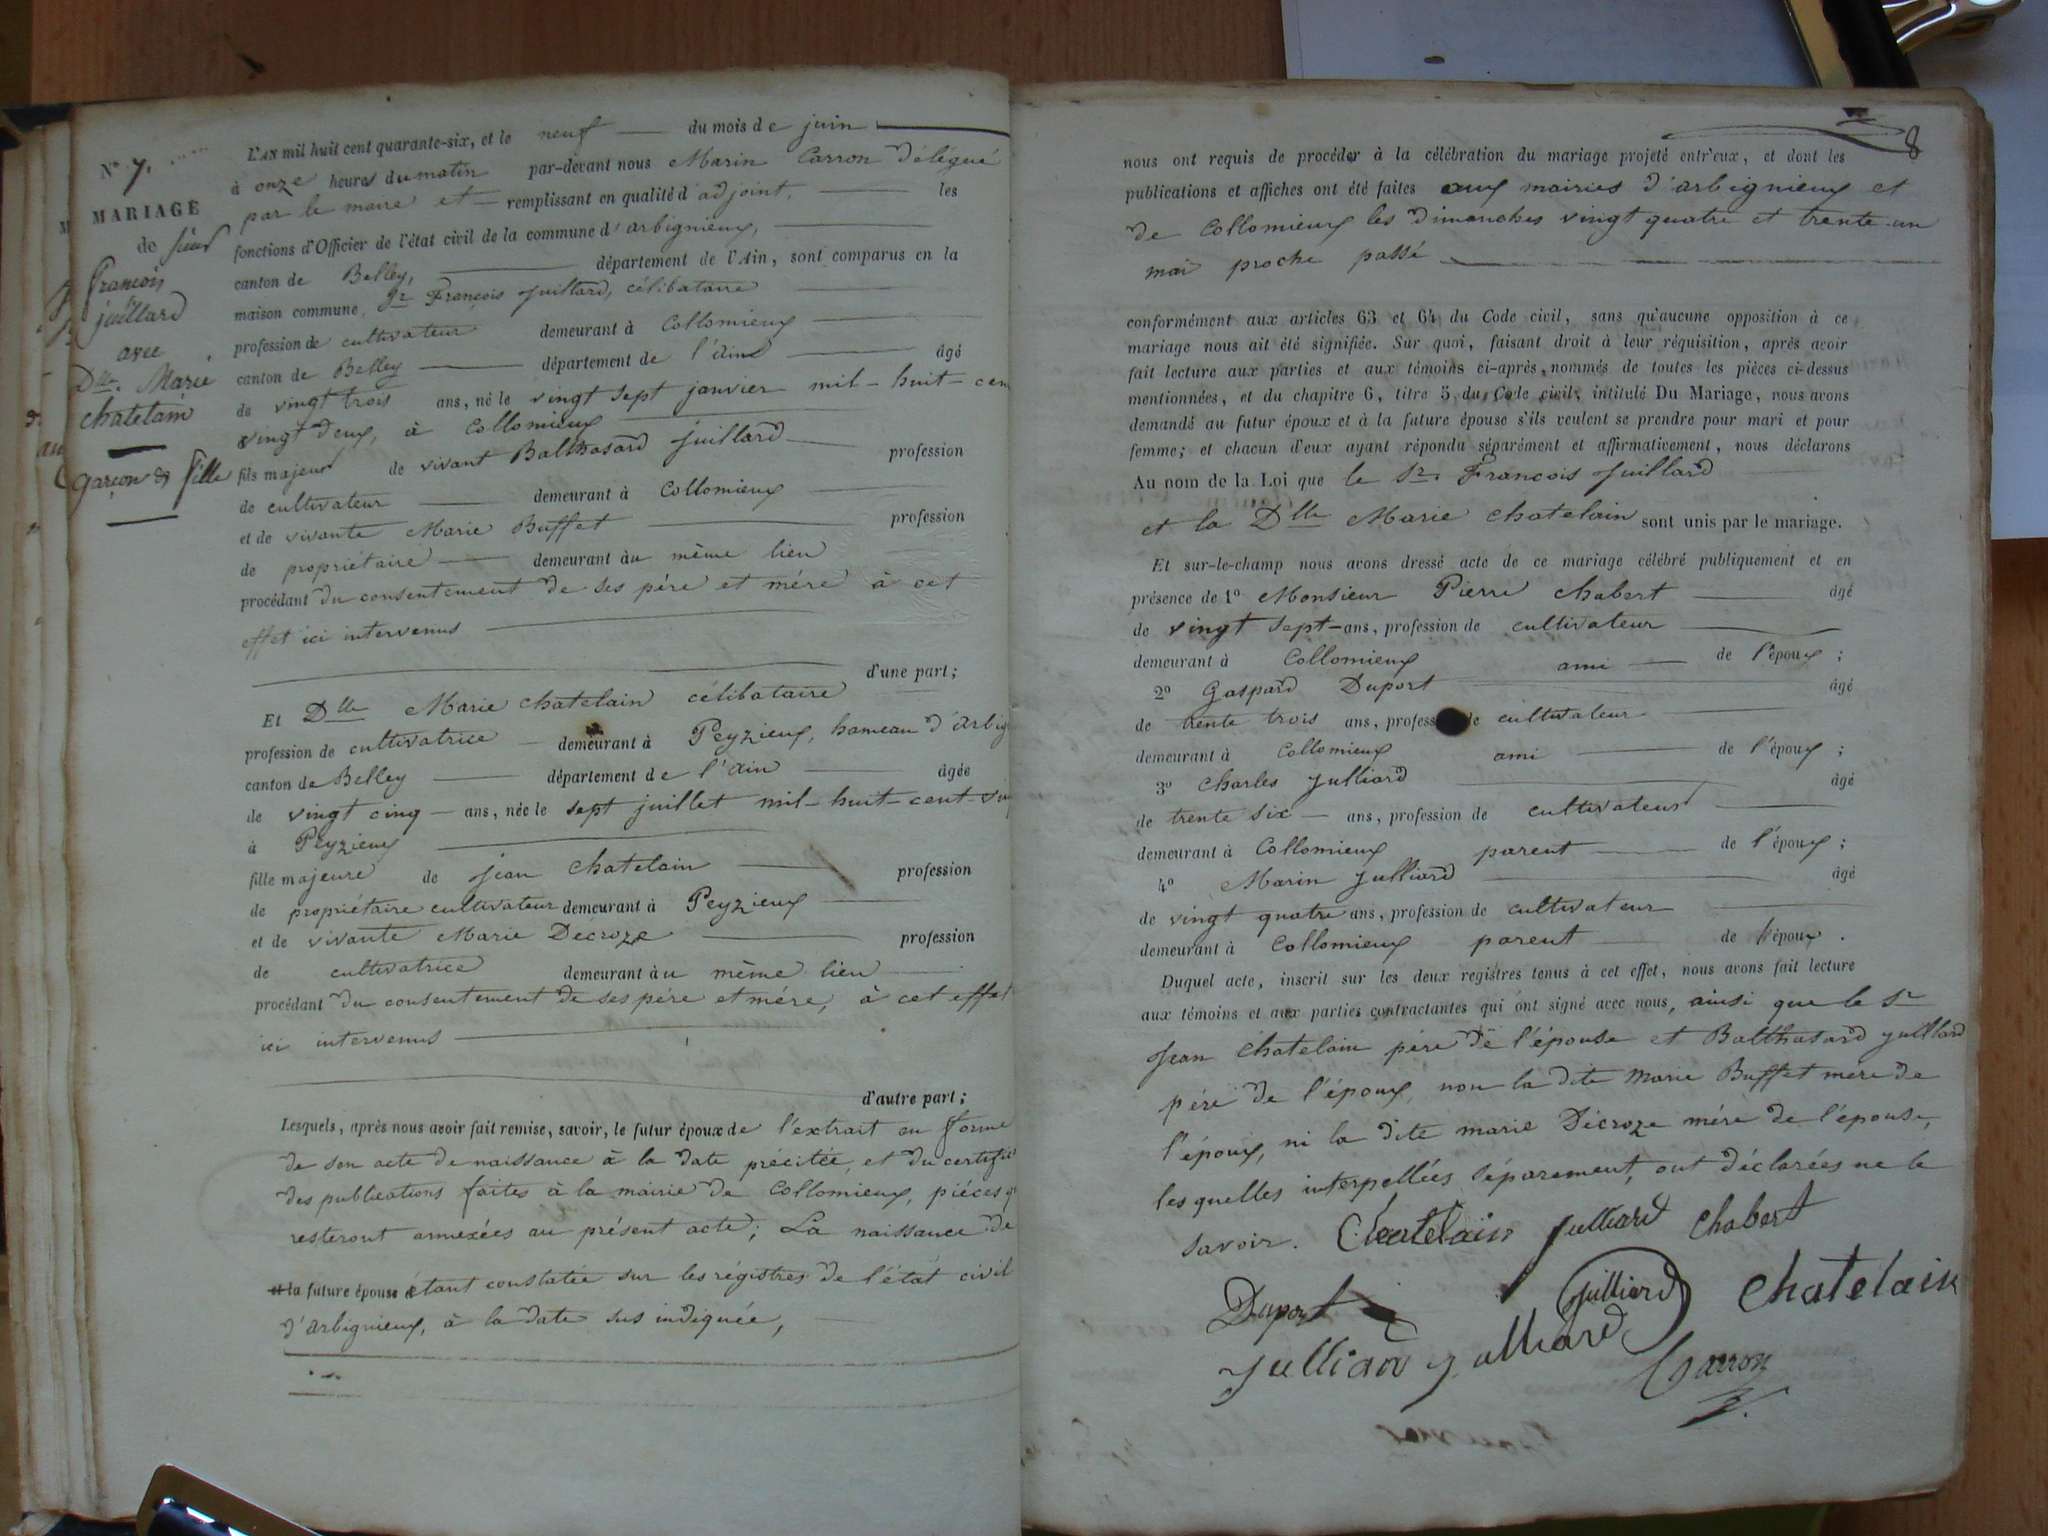 N° 7.
MARIAGE
de sieur
François
juillard
avec
Dlle. Marie
chatelain
Garçon & fille
L'AN mil huit cent quarante-six, et le neuf du mois de juin
à onze heures du matin par-devant nous Marin Carron délégué
par le maire et remplissant en qualité d'adjoint, les
fonctions d'Officier de l'état civil de la commune d'arbignieux,
canton de Belley, département de l'Ain, sont comparus en la
maison commune, Sr François juillard, célibataire
profession de cultivateur demeurant à Collomieux
canton de Belley département de l'ain âgé
de vingt trois ans, né le vingt sept janvier mil-huit-cen
vingt deux, à Collomieux
fils majeur de vivant Balthasard juillard profession
de cultivateur demeurant à Collomieux
et de vivante Marie Buffet profession
de propriétaire demeurant au même lieu
procédant du consentement de ses père et mére à cet
effet ici intervenus
d'une part;
Et Dlle Marie chatelain célibataire
profession de cultivatrice demeurant à Peyzieux, hameau d'arbig
canton de Belley département de l'ain âgée
de vingt cinq ans, née le sept juillet mil-huit-cent-vin
à Peyzieux
fille majeure de jean chatelain profession
de propriétaire cultivateur demeurant à Peyzieux
et de vivante Marie Décroze profession
de cultivatrice demeurant au même lieu
procédant du consentement de ses pére et mére, à cet effet
ici intervenus
d'autre part;
Lesquels, après nous avoir fait remise, savoir, le futur époux de l'extrait en forme
de son acte de naissance à la date précitée, et du certific
des publications faites à la mairie de Collomieux, piéces q
resteront annexées au présent acte; La naissance de
et la future épouse étant constatée sur les régistres de l'état civil
d'arbignieux, à la date sus indiquée,
8
nous ont requis de procéder à la célébration du mariage projeté entr'eux, et dont les
publications et affiches ont été faites aux mairies d'arbignieux et
de Collomieux les dimanches vingt quatre et trente-un
mai proche passé
conformément aux articles 63 et 64 du Code civil, sans qu'aucune opposition à ce
mariage nous ait été signifiée. Sur quoi, faisant droit à leur réquisition, après avoir
fait lecture aux parties et aux témoins ci-après nommés de toutes les pièces ci-dessus
mentionnées, et du chapitre 6, titre 5 du Code civil, intitulé Du Mariage, nous avons
demandé au futur époux et à la future épouse s'ils veulent se prendre pour mari et pour
femme; et chacun d'eux ayant répondu séparément et affirmativement, nous déclarons
Au nom de la Loi que le Sr. François juillard
et la Dlle Marie chatelain sont unis par le mariage.
Et sur-le-champ nous avons dressé acte de ce mariage célébré publiquement et en
présence de 1° Monsieur Pierre chabert âgé
de vingt sept ans, profession de cultivateur
demeurant à Collomieux ami de l'époux;
2° Gaspard Duport âgé
de trente trois ans, profess de cultivateur
demeurant à Collomieux ami de l'époux;
3° charles julliard âgé
de trente six ans, profession de cultivateur
demeurant à Collomieux parent de l'époux;
4° Marin julliard âgé
de vingt quatre ans, profession de cultivateur
demeurant à Collomieux parent de l'époux.
Duquel acte, inscrit sur les deux registres tenus à cet effet, nous avons fait lecture
aux témoins et aux parties contractantes qui ont signé avec nous, ainsi que le Sr
jean chatelain père de l'épouse et Balthasard juillard
pére de l'époux, non la dite marie Buffet mere de
l'époux, ni la dite marie Décroze mére de l'épouse,
lesquelles interpellées séparement, ont déclarées ne le
savoir. Chatelain julliard Chabert
Duport julliard chatelain
julliard julliard
Carron